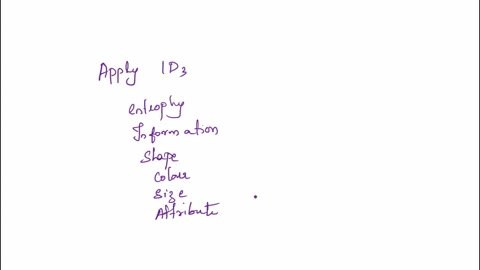 Apply ID3
entrophy
Information
Shape
Colour
Size
Attribute